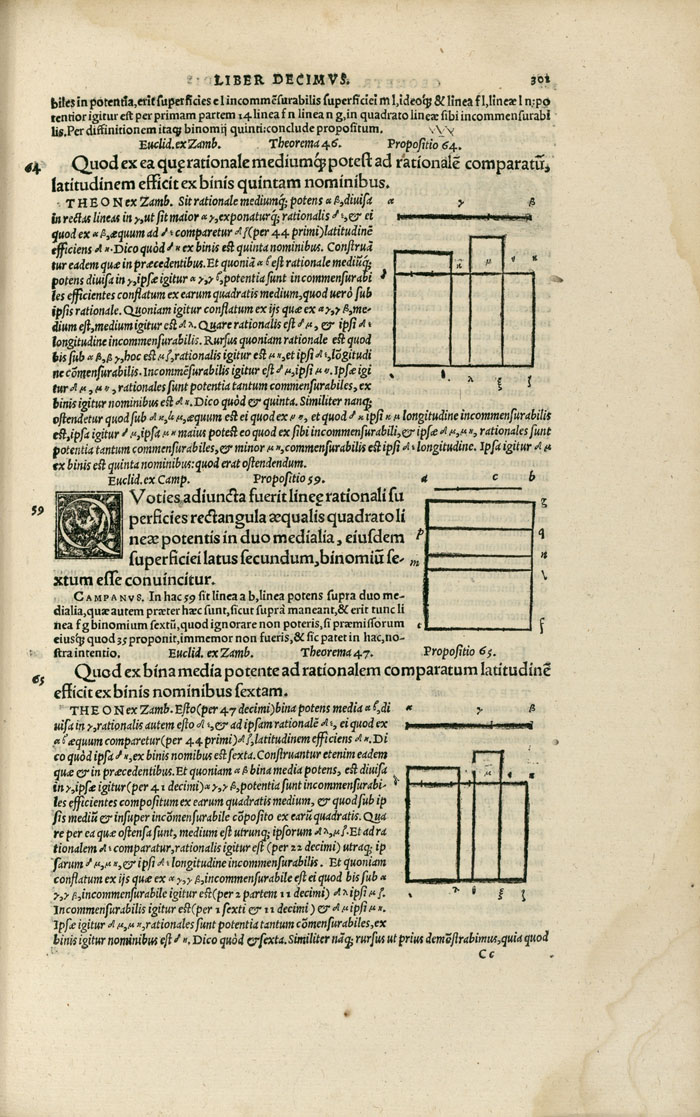 LIBER DECIMVS. 301
biles in potentia, erit superficies e l incommēsurabilis superficiei m l, ideoq̃ & linea f l, lineæ l n: po
tentior igitur est per primam partem 14 linea f n linea n g, in quadrato lineæ sibi incommensurabi
lis. Per diffinitionem itaq̃ binomij quinti: conclude propositum.
Euclid. ex Zamb. Theorema 46. Propositio 64.
64 Quod ex ea quę rationale mediumq̃ potest ad rationalē comparatū,
latitudinem efficit ex binis quintam nominibus.
THEON ex Zamb. Sit rationale mediumq̃; potens α β, diuisa
in rectas lineas in γ, ut sit maior α γ, exponaturq̃; rationalis δ ε, & ei
quod ex α β, æquum ad δ ε comparetur δ ζ (per 44 primi) latitudinē
efficiens δ η. Dico quòd δ η ex binis est quinta nominibus. Construā
tur eadem quæ in præcedentibus. Et quoniā α β est rationale mediūq̃;
potens diuisa in γ, ipsæ igitur α γ, γ β, potentia sunt incommensurabi
les efficientes conflatum ex earum quadratis medium, quod uerò sub
ipsis rationale. Quoniam igitur conflatum ex ijs quæ ex α γ, γ β, me-
dium est, medium igitur est δ λ. Quare rationalis est δ μ, & ipsi δ ε
longitudine incommensurabilis. Rursus quoniam rationale est quod
bis sub α β, β γ, hoc est μ ζ, rationalis igitur est μ η, et ipsi δ ε, lōgitudi
ne cōmensurabilis. Incommēsurabilis igitur est δ μ, ipsi μ η. Ipsæ igi
tur δ μ, μ η, rationales sunt potentia tantum commensurabiles, ex
binis igitur nominibus est δ η. Dico quòd & quinta. Similiter nanq̃;
ostendetur quod sub δ κ, κ μ, æquum est ei quod ex μ ν, et quod δ κ ipsi κ μ longitudine incommensurabilis
est, ipsa igitur δ μ, ipsa μ η maius potest eo quod ex sibi incommensurabili, & ipsæ δ μ, μ η, rationales sunt
potentia tantum commensurabiles, & minor μ η, commensurabilis est ipsi δ ε longitudine. Ipsa igitur δ μ
ex binis est quinta nominibus: quod erat ostendendum.
α γ β
Euclid. ex Camp. Propositio 59.
59 QVoties adiuncta fuerit lineę rationali su
perficies rectangula æqualis quadrato li
neæ potentis in duo medialia, eiusdem
superficiei latus secundum, binomiū se-
xtum esse conuincitur.
a c b
g
p q
n
m l
e f
CAMPANVS. In hac 59 sit linea a b, linea potens supra duo me-
dialia, quæ autem præter hæc sunt, sicut suprà maneant, & erit tunc li
nea f g binomium sextū, quod ignorare non poteris, si præmissorum
eiusq̃ quod 35 proponit, immemor non fueris, & sic patet in hac, no-
stra intentio. Euclid. ex Zamb. Theorema 47. Propositio 65.
65 Quod ex bina media potente ad rationalem comparatum latitudinē
efficit ex binis nominibus sextam.
THEON ex Zamb. Esto (per 47 decimi) bina potens media α β, di
uisa in γ, rationalis autem esto δ ε, & ad ipsam rationalē δ ε, ei quod ex
α β æquum comparetur (per 44 primi) δ ζ, latitudinem efficiens δ η. Di
co quòd ipsa δ η, ex binis nomibus est sexta. Construantur etenim eadem
quæ & in præcedentibus. Et quoniam α β bina media potens, est diuisa
in γ, ipsæ igitur (per 41 decimi) α γ, γ β, potentia sunt incommensurabi-
les efficientes compositum ex earum quadratis medium, & quod sub ip
sis mediū & insuper incōmensurabile cōposito ex earū quadratis. Qua
re per ea quæ ostensa sunt, medium est utrunq̃; ipsorum δ λ, μ ζ. Et ad ra
tionalem δ ε comparatur, rationalis igitur est (per 22 decimi) utraq̃; ip
sarum δ μ, μ η, & ipsi δ ε longitudine incommensurabilis. Et quoniam
conflatum ex ijs quæ ex α γ, γ β, incommensurabile est ei quod bis sub α
γ, γ β, incommensurabile igitur est (per 2 partem 11 decimi) δ λ ipsi μ ζ.
Incommensurabilis igitur est (per 1 sexti & 11 decimi) & δ μ ipsi μ η.
Ipsæ igitur δ μ, μ η, rationales sunt potentia tantum cōmensurabiles, ex
binis igitur nominibus est δ η. Dico quòd & sexta. Similiter nāq̃; rursus ut prius demōstrabimus, quia quod
α γ β
Cc